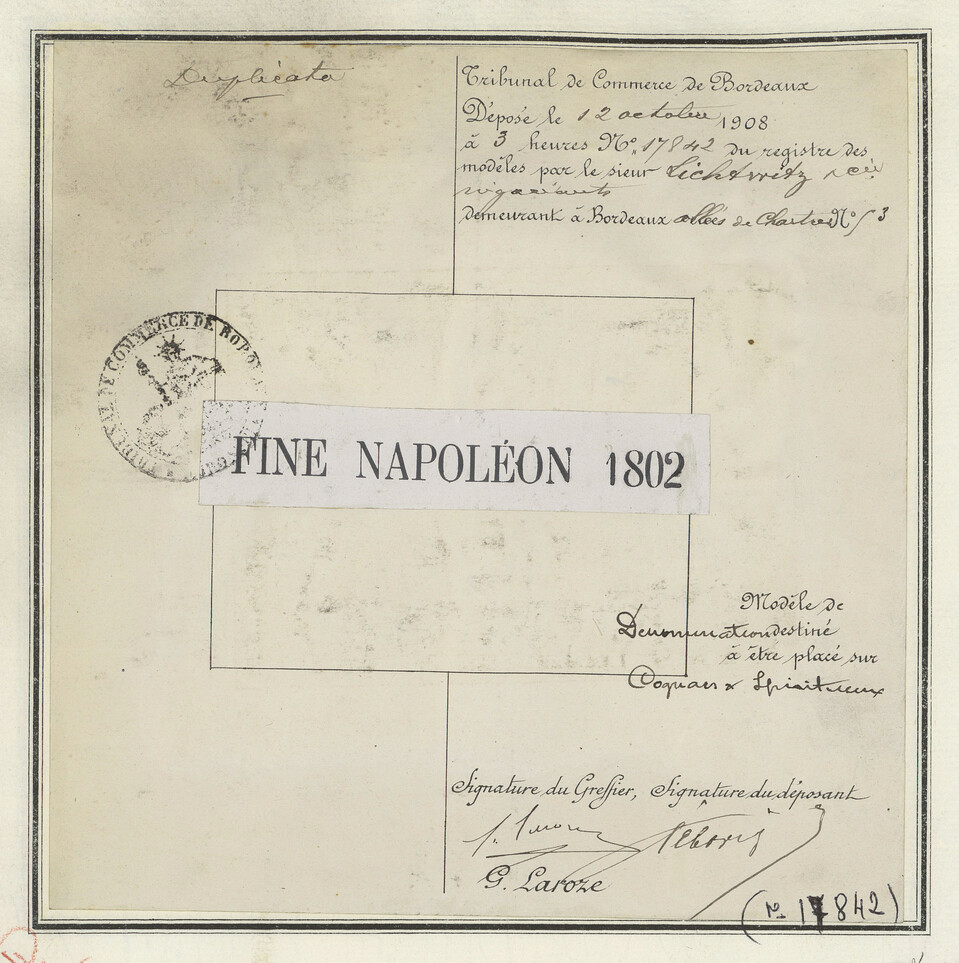 Duplicata
Tribunal de Commerce de Bordeaux
Déposé le 12 octobre 1908
à 3 heures N° 17842 du registre des
modèles par le sieur Lichtwitz & Cie
négociants
demeurant à Bordeaux allées de Chartres N°
TRIBUNAL DE COMMERCE DE BORDEAUX
FINE NAPOLÉON 1802
Modèle de
Dénomination destiné
à être placé sur
Cognacs & Spiritueux
Signature du Greffier, Signature du déposant
G. Laroze
(n. 17842)